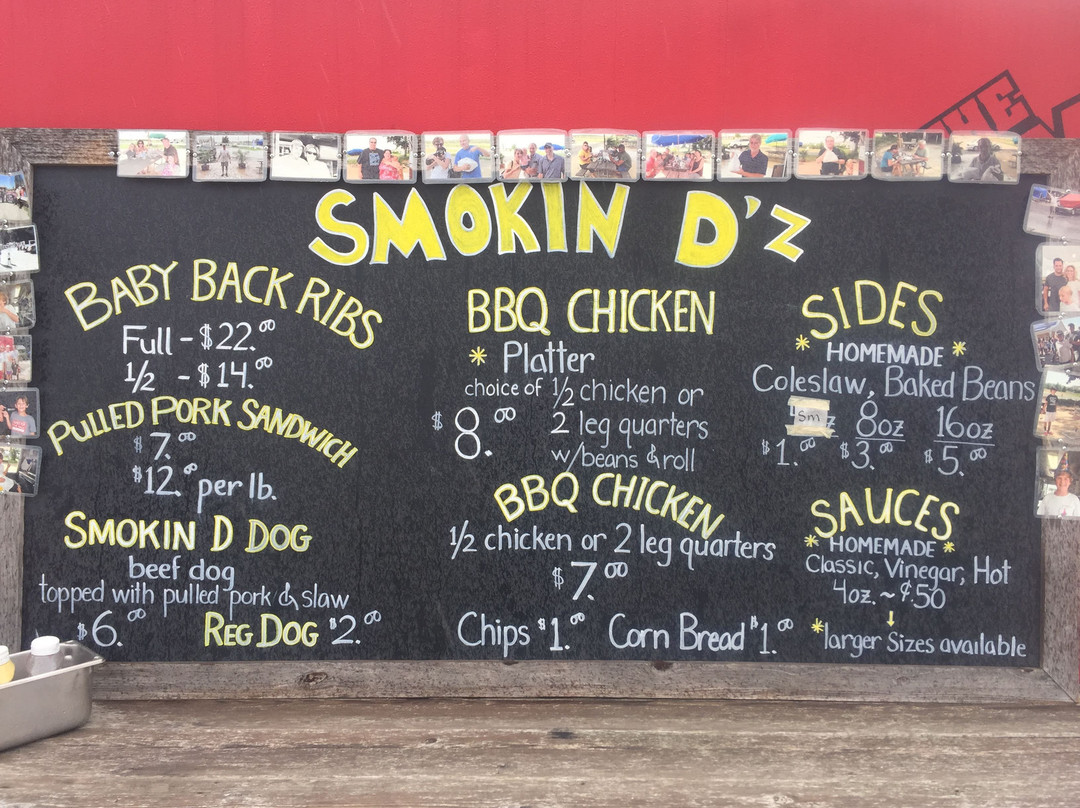 THE
SMOKIN D'Z
BABY BACK RIBS
Full - $22.00
1/2 - $14.00
PULLED PORK SANDWICH
$7.00
$12.00 per lb.
SMOKIN D DOG
beef dog
topped with pulled pork & slaw
$6.00 REG DOG $2.00
BBQ CHICKEN
* Platter
choice of 1/2 chicken or
$8.00 2 leg quarters
w/beans & roll
BBQ CHICKEN
1/2 chicken or 2 leg quarters
$7.00
Chips $1.00 Corn Bread $1.00
SIDES
* HOMEMADE *
Coleslaw, Baked Beans
Sm 8oz 16oz
$1.00 $3.00 $5.00
SAUCES
* HOMEMADE *
Classic, Vinegar, Hot
4oz. ~ $.50
*larger Sizes available